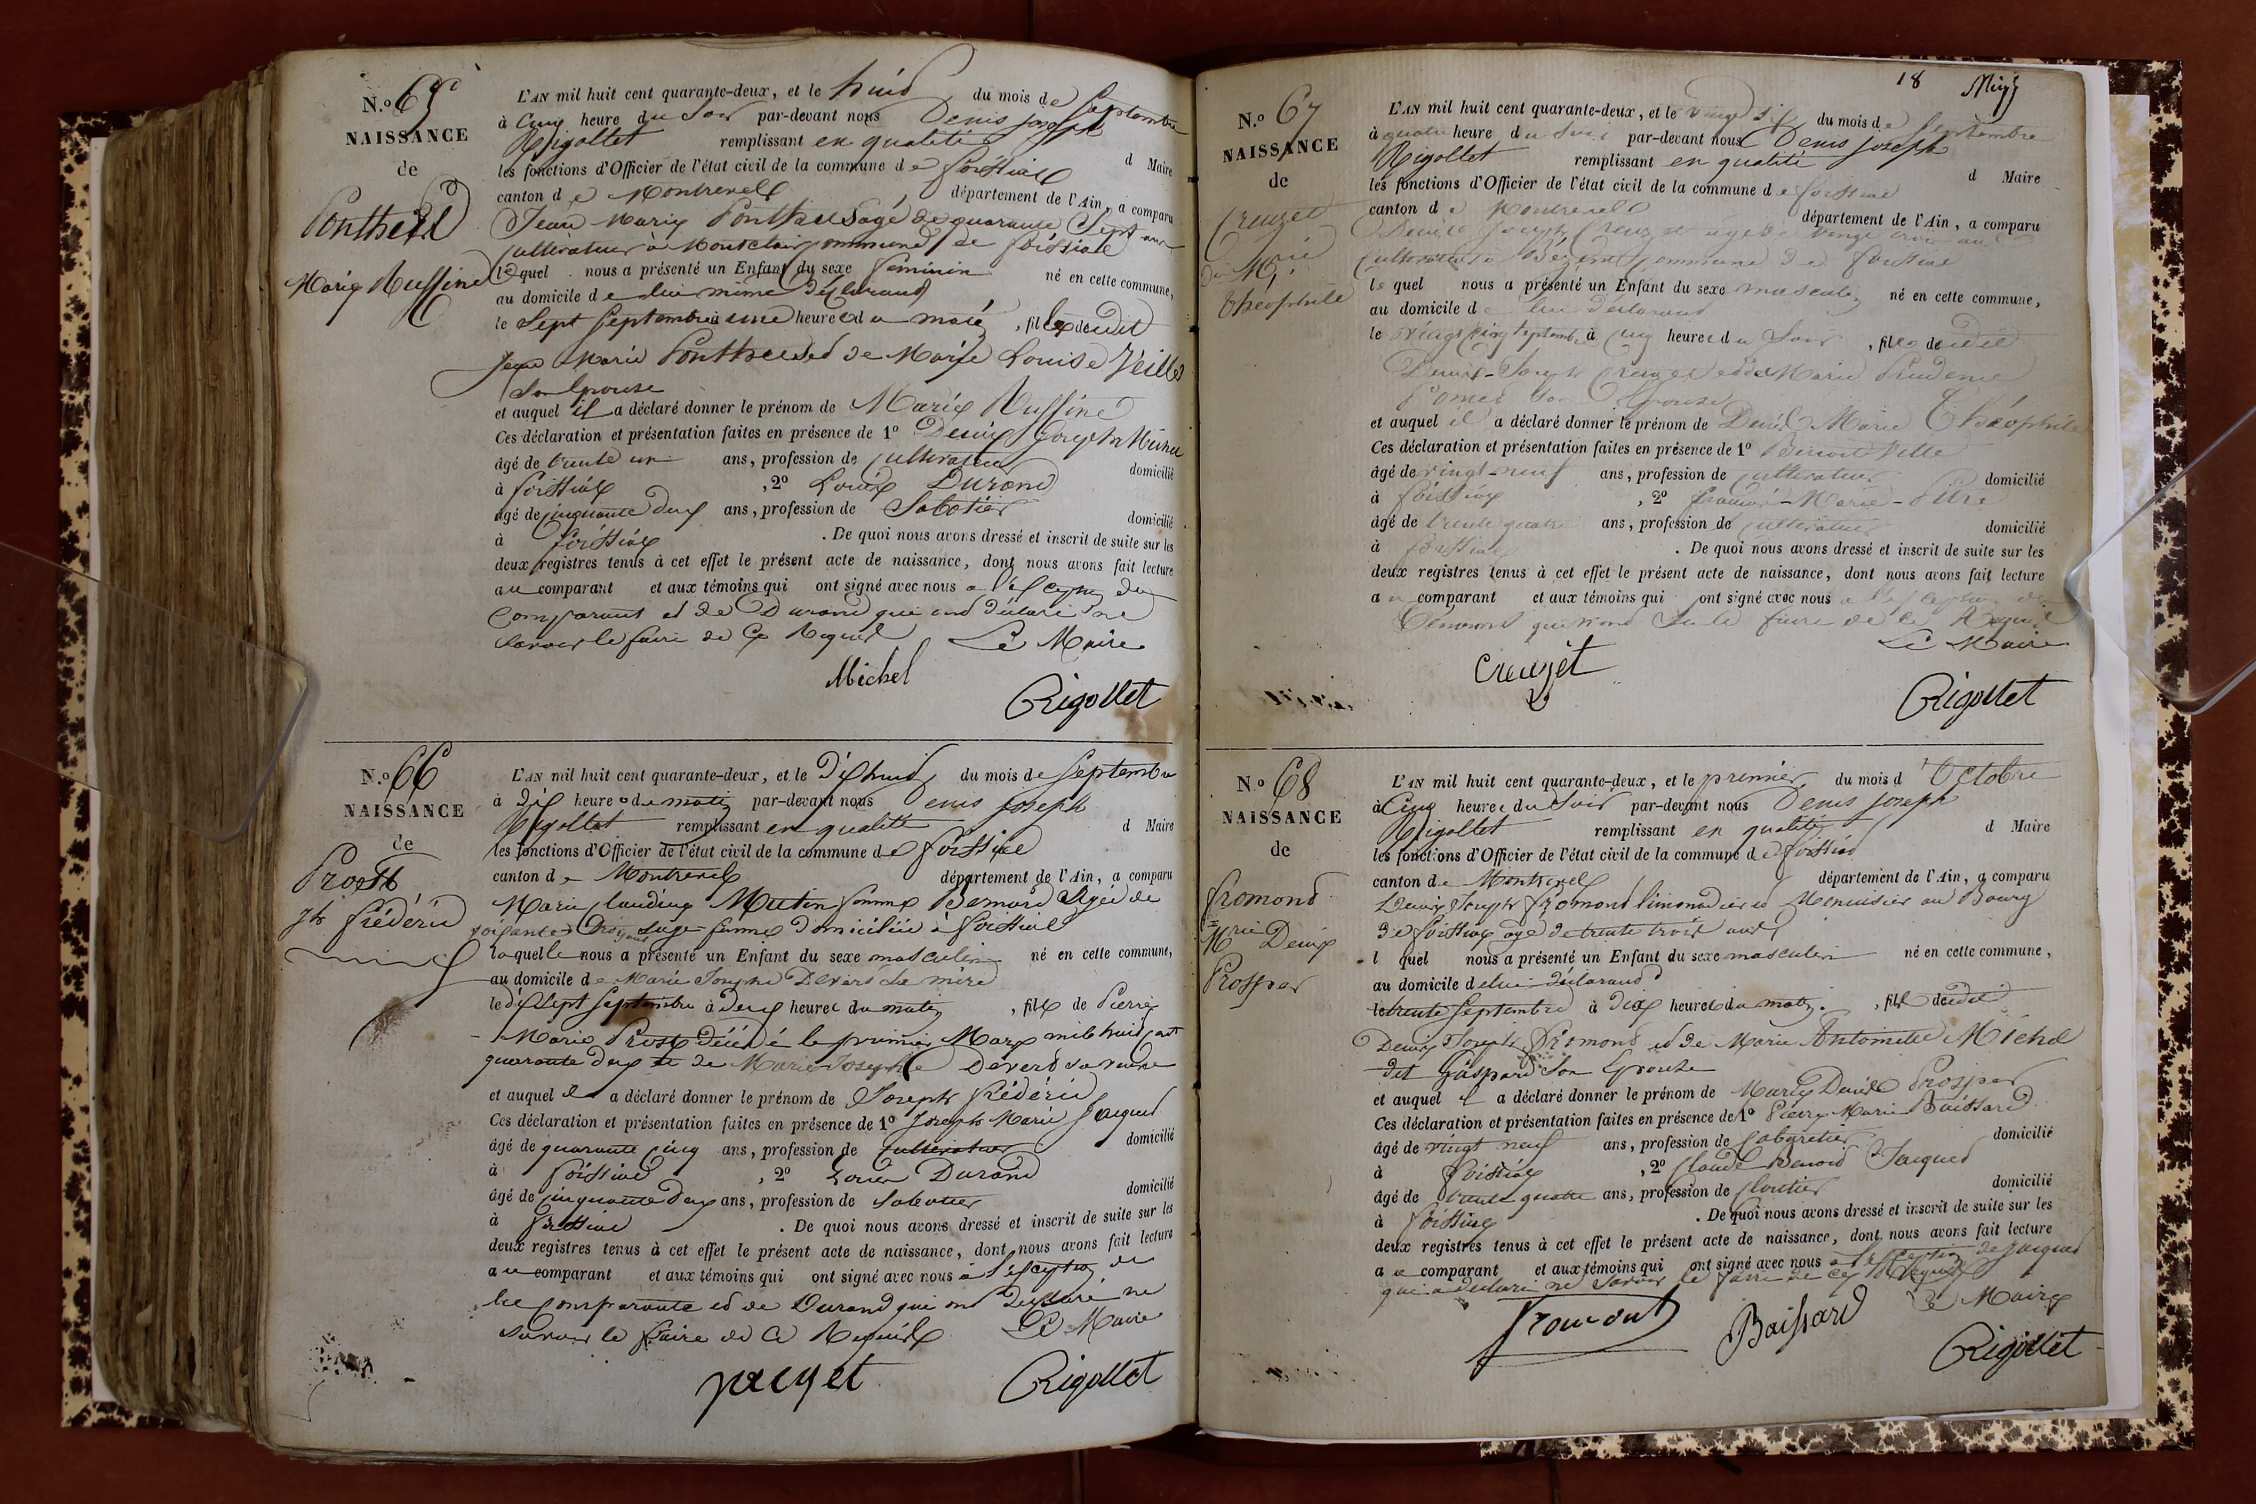 N.o 65
NAISSANCE
de
Ponthus
Marie Ruffine
L'AN mil huit cent quarante-deux, et le huit du mois de Septembre
à cinq heure du Soir par-devant nous Denis Joseph
Rigollet remplissant en qualité d Maire
les fonctions d'Officier de l'état civil de la commune de foissiat
canton de Montrevel département de l'Ain, a comparu
Jean Marie Ponthus agé de quarante Sept ans
cultivateur à Montclair commune de foissiat
lequel nous a présenté un Enfant du sexe feminin né en cette commune,
au domicile de lui même déclarant
le Sept Septembre à une heure du matin, fille dudit
Jean Marie Ponthus et de Marie Louise Veille
Son épouse
et auquel il a déclaré donner le prénom de Marie Ruffine
Ces déclaration et présentation faites en présence de 1º Denis Joseph Michel
âgé de trente un ans, profession de cultivateur domicilié
à foissiat, 2º Louis Durand
âgé de cinquante deux ans, profession de Sabotier domicilié
à foissiat. De quoi nous avons dressé et inscrit de suite sur les
deux registres tenus à cet effet le présent acte de naissance, dont nous avons fait lecture
au comparant et aux témoins qui ont signé avec nous à l'exception du
comparant et de Durand qui ont déclaré ne
savoir le faire de ce Requis Le Maire
Michel
Rigollet
N.o 66
NAISSANCE
de
Prost
Jh frédéric
L'AN mil huit cent quarante-deux, et le dixhuit du mois de Septembre
à dix heure du matin par-devant nous Denis Joseph
Rigollet remplissant en qualité d Maire
les fonctions d'Officier de l'état civil de la commune de foissiat
canton de Montrevel département de l'Ain, a comparu
Marie Claudine Mutin femme Bernard agée de
soixante trois ans sage femme domiciliée à foissiat
laquelle nous a présenté un Enfant du sexe masculin né en cette commune,
au domicile de Marie Josephe Devers sa mère
le dixSept Septembre à deux heure du matin, fils de Pierre
Marie Prost décédé le premier Mars mil huit cent
quarante deux et de Marie Josephe Devers sa veuve
et auquel elle a déclaré donner le prénom de Joseph frédéric
Ces déclaration et présentation faites en présence de 1º Joseph Marie Jacquet
âgé de quarante cinq ans, profession de cultivateur domicilié
à foissiat, 2º Louis Durand
âgé de cinquante deux ans, profession de Sabotier domicilié
à foissiat. De quoi nous avons dressé et inscrit de suite sur les
deux registres tenus à cet effet le présent acte de naissance, dont nous avons fait lecture
au comparant et aux témoins qui ont signé avec nous à l'exception de
la comparante et de Durand qui ont déclaré ne
savoir le faire de ce Requis Le Maire
jacquet
Rigollet
18
N.o 67
NAISSANCE
de
Creuzet
Denis Mrie
théophile
L'AN mil huit cent quarante-deux, et le vingt Six du mois de Septembre
à quatre heure du Soir par-devant nous Denis Joseph
Rigollet remplissant en qualité d Maire
les fonctions d'Officier de l'état civil de la commune de foissiat
canton de Montrevel département de l'Ain, a comparu
Denis Joseph Creuzet agé de trente trois ans
cultivateur commune de foissiat
lequel nous a présenté un Enfant du sexe masculin né en cette commune,
au domicile de lui déclarant
le vingt cinq Septembre à cinq heure du Soir, fils dudit
Denis-Joseph Creuzet et de Marie Prudence
son Epouse
et auquel il a déclaré donner le prénom de Denis Marie Théophile
Ces déclaration et présentation faites en présence de 1º Benoit
âgé de vingt-neuf ans, profession de cultivateur domicilié
à foissiat, 2º françois-Marie-
âgé de trente quatre ans, profession de cultivateur domicilié
à foissiat. De quoi nous avons dressé et inscrit de suite sur les
deux registres tenus à cet effet le présent acte de naissance, dont nous avons fait lecture
au comparant et aux témoins qui ont signé avec nous à l'exception des
témoins qui n'ont su le faire de ce Requis
Le Maire
creuzet
Rigollet
No 68
NAISSANCE
de
fromond
Mrie Denis
Prosper
L'AN mil huit cent quarante-deux, et le premier du mois d'Octobre
à Cinq heure du Soir par-devant nous Denis Joseph
Rigollet remplissant en qualité d Maire
les fonctions d'Officier de l'état civil de la commune de foissiat
canton de Montrevel département de l'Ain, a comparu
Denis Joseph fromond limonadier et Menuisier au Bourg
de foissiat agé de trente trois ans
l quel nous a présenté un Enfant du sexe masculin né en cette commune,
au domicile de lui déclarant
le trente Septembre à dix heure du matin, fils dudit
Denis Joseph fromond et de Marie Antoinette Michel
dit Gaspard Son Epouse
et auquel il a déclaré donner le prénom de Marie Denis Prosper
Ces déclaration et présentation faites en présence de 1º Pierre Marie Baissard
âgé de vingt neuf ans, profession de cabaretier domicilié
à foissiat, 2º Claude Benoit Jacquet
âgé de trente quatre ans, profession de cloutier domicilié
à foissiat. De quoi nous avons dressé et inscrit de suite sur les
deux registres tenus à cet effet le présent acte de naissance, dont nous avons fait lecture
au comparant et aux témoins qui ont signé avec nous à l'exception de Jacquet
qui a déclaré ne savoir le faire de ce Requis
Le Maire
fromont
Baissard
Rigollet